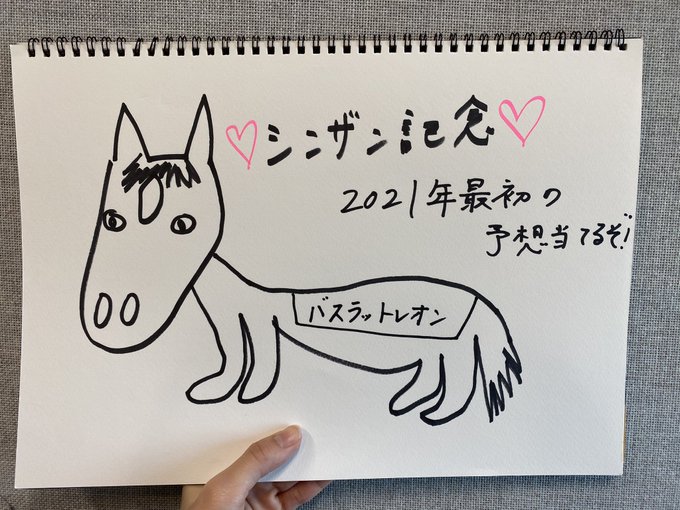 シンザン記念
2021年最初の
予想当てるぞ!
バスラットレオン